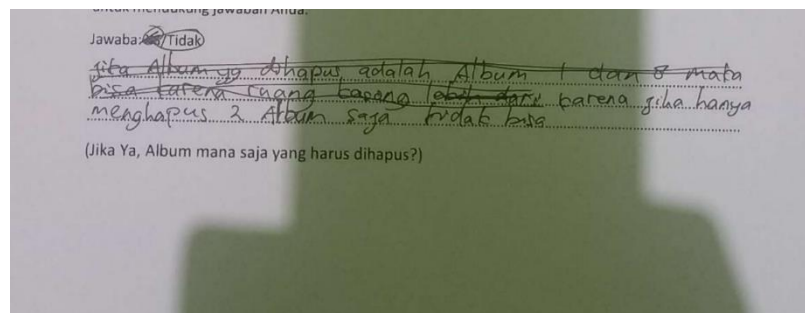 untuk mendukung jawaban Anda.
Jawaba: Tidak
jika Album yg dihapus adalah Album 1 dan 8 maka
bisa karena ruang kosong lebih dari karena jika hanya
menghapus 2 Album saja tidak bisa
(Jika Ya, Album mana saja yang harus dihapus?)